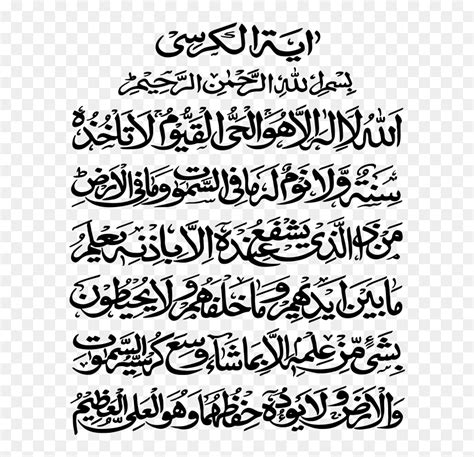 اٰية الكرسى
بسم الله الرحمٰن الرحيم
الله لا اله الا هو الحى القيوم لا تاخذه
سنة ولا نوم له ما فى السمٰوت وما فى الارض
من ذا الذى يشفع عنده الا باذنه يعلم
ما بين ايديهم وما خلفهم ولا يحيطون
بشئ من علمه الا بما شاء وسع كرسيه السمٰوت
والارض ولا يوده حفظهما وهو العلى العظيم